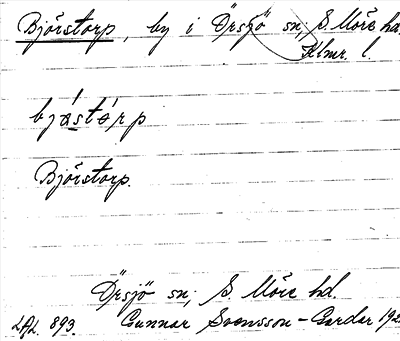 Björstorp, by i Örsjö sn; S. Möre hd.
Klmr. l.
bjástórp
Björstorp.
Örsjö sn; S. Möre hd.
LAL. 893. Gunnar Svensson - Gardar 192